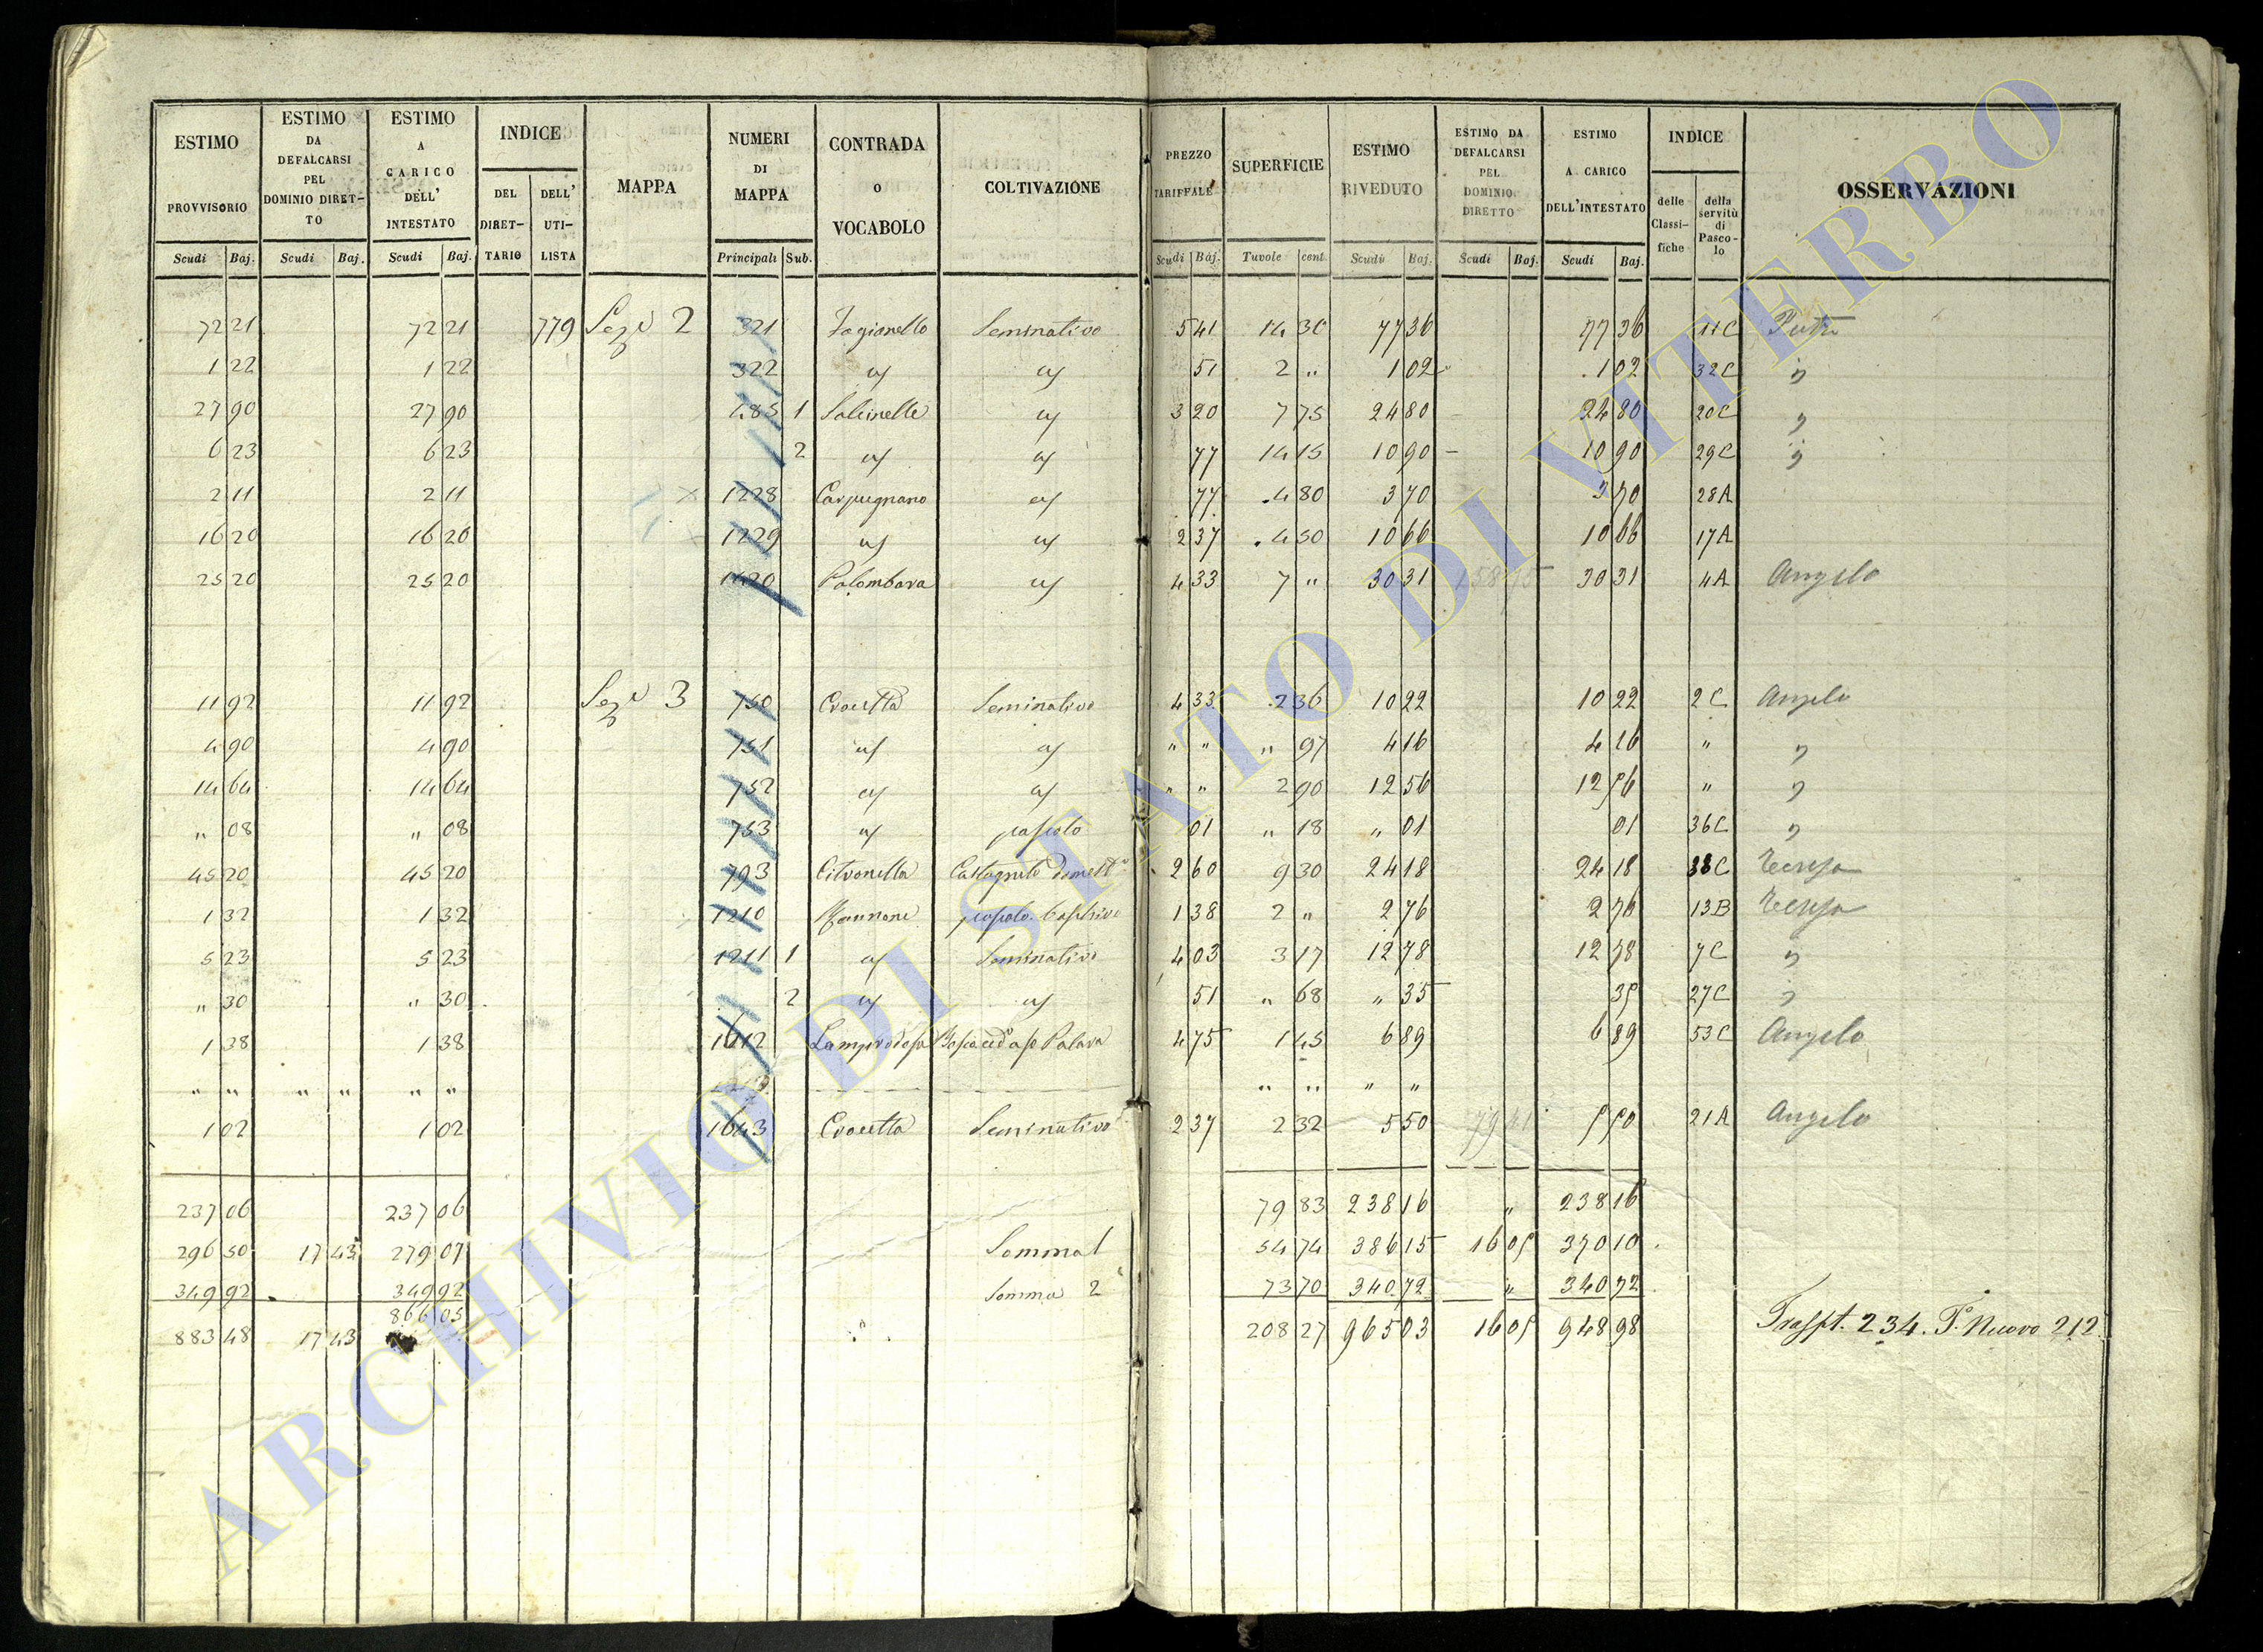 ESTIMO PROVVISORIO
ESTIMO DA DEFALCARSI PEL DOMINIO DIRET- TO
ESTIMO A CARICO DELL' INTESTATO
INDICE
DEL DIRET- TARIO
DELL' UTI- LISTA
MAPPA
NUMERI DI MAPPA
CONTRADA O VOCABOLO
COLTIVAZIONE
PREZZO TARIFFALE
SUPERFICIE
ESTIMO RIVEDUTO
ESTIMO DA DEFALCARSI PEL DOMINIO DIRETTO
ESTIMO A CARICO DELL'INTESTATO
INDICE
delle Classi- fiche
della servitù di Pasco- lo
OSSERVAZIONI
Scudi Baj. Scudi Baj. Scudi Baj. Principali Sub. Scudi Baj. Tavole cent. Scudi Baj. Scudi Baj. Scudi Baj.
72 21 72 21 779 Sez e 2 321 Fagianello Seminativo 5 41 14 30 77 36 77 36 11C
1 22 1 22 322 " " 51 2 " 1 02 1 02 32C "
27 90 27 90 485 1 Salcinelle " 3 20 7 75 24 80 24 80 20C "
6 23 6 23 2 " " 77 14 15 10 90 10 90 29C "
2 11 2 11 1228 Carpugnano " 77 4 80 3 70 3 70 28A
16 20 16 20 1229 " " 2 37 4 50 10 66 10 66 17A
25 20 25 20 1420 Palombara " 4 33 7 " 30 31 30 31 4A Angelo
11 92 11 92 Sez e 3 750 Crocetta Seminativo 4 33 2 36 10 22 10 22 2C Angelo
4 90 4 90 751 " " " " " 97 4 16 4 16 " "
14 64 14 64 752 " " " " 2 90 12 56 12 56 " "
" 08 " 08 753 " pascolo 01 " 18 " 01 01 36C "
45 20 45 20 793 Citronella Castagneto 2 60 9 30 24 18 24 18 38C Teresa
1 32 1 32 1210 pascolo 1 38 2 " 2 76 2 76 13B Teresa
5 23 5 23 1211 1 " Seminativo 4 03 3 17 12 78 12 78 7C "
" 30 " 30 2 " " 51 " 68 " 35 35 27C "
1 38 1 38 1612 4 75 1 45 6 89 6 89 53C Angelo
" " " " " " " " " "
1 02 1 02 1643 Crocetta Seminativo 2 37 2 32 5 50 5 50 21A Angelo
237 06 237 06 79 83 238 16 " 238 16
296 50 17 43 279 07 Somma 1 54 74 386 15 16 05 370 10
349 92 349 92 Somma 2 73 70 340 72 " 340 72
866 05
883 48 17 43 208 27 965 03 16 05 948 98 Traspt. 234. P.º Nuovo 212
ARCHIVIO DI STATO DI VITERBO